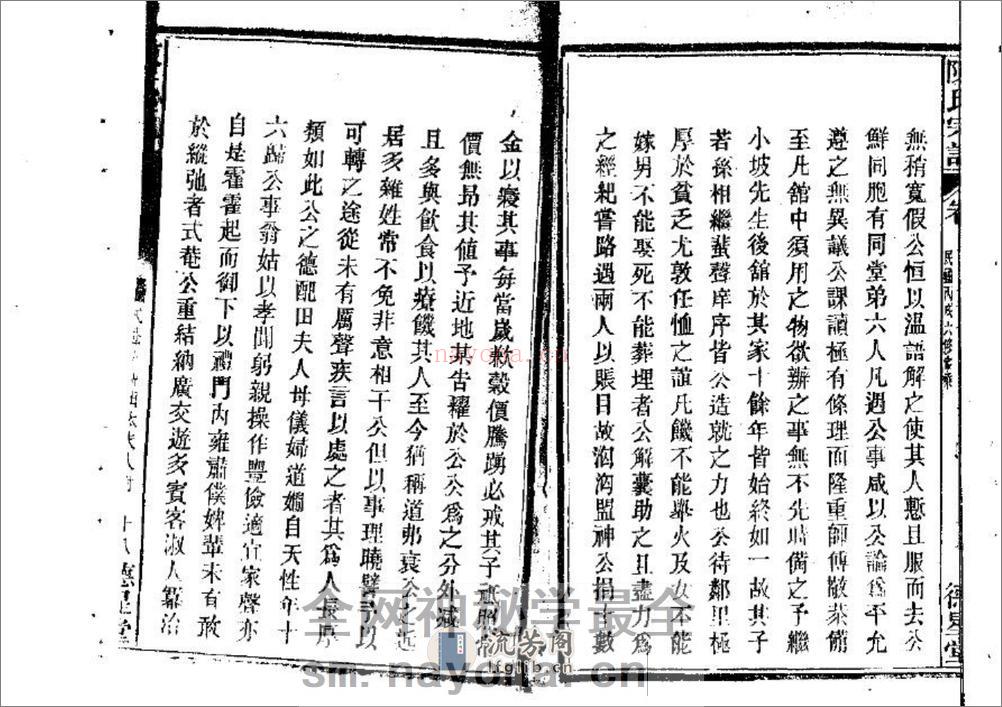 陳氏宗譜
卷
德星堂
無稍寬假公恒以溫語解之使其人慙且服而去公
鮮同胞有同堂弟六人凡遇公事咸以公論爲平允
遵之無異議公課讀極有條理而隆重師傅敬恭備
至凡舘中須用之物欲辦之事無不先時備之予繼
小坡先生後舘於其家十餘年皆始終如一故其子
若孫相繼蜚聲庠序皆公造就之力也公待鄰里極
厚於貧乏尤敦任恤之誼凡饑不能舉火及女不能
嫁男不能娶死不能葬埋者公解囊助之且盡力爲
之經紀嘗路遇兩人以賬目故洶洶盟神公捐十數
金以寢其事每當歲祲榖價騰踴必戒其子
價無昂其值予近地某告糶於公公爲之分外减
且多與飲食以療饑其人至今猶稱道弗衰公之近
居多雜姓常不免非意相干公但以事理曉譬予以
可轉之途從未有厲聲疾言以處之者其爲人長厚
類如此公之德配田夫人母儀婦道嫺自天性年十
六歸公事翁姑以孝聞躬親操作豐儉適宜家聲亦
自是霍霍起而御下以禮門內雍肅僕婢輩未有敢
於縱弛者式菴公重結納廣交遊多賓客淑人靠治
十八
德星堂
nayona.cn
全网神秘学最全
流芳阁
lfglib.cn
sm.nayona.cn